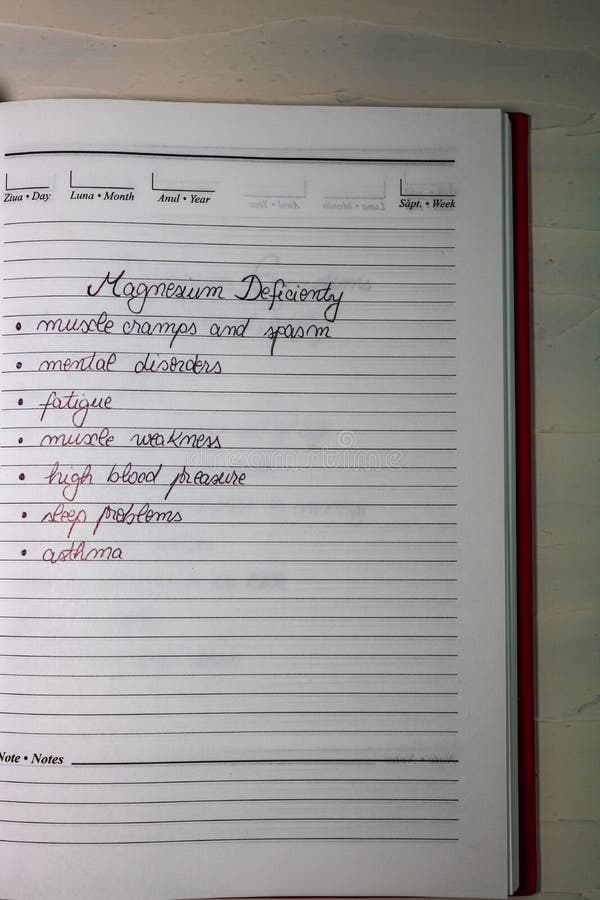 Ziua • Day Luna • Month Anul • Year Săpt. • Week
Magnesium Deficienty
• muscle cramps and spasm
• mental disorders
• fatigue
• muscle weakness
• high blood preasure
• sleep problems
• asthma
Note • Notes
dreamstime.com